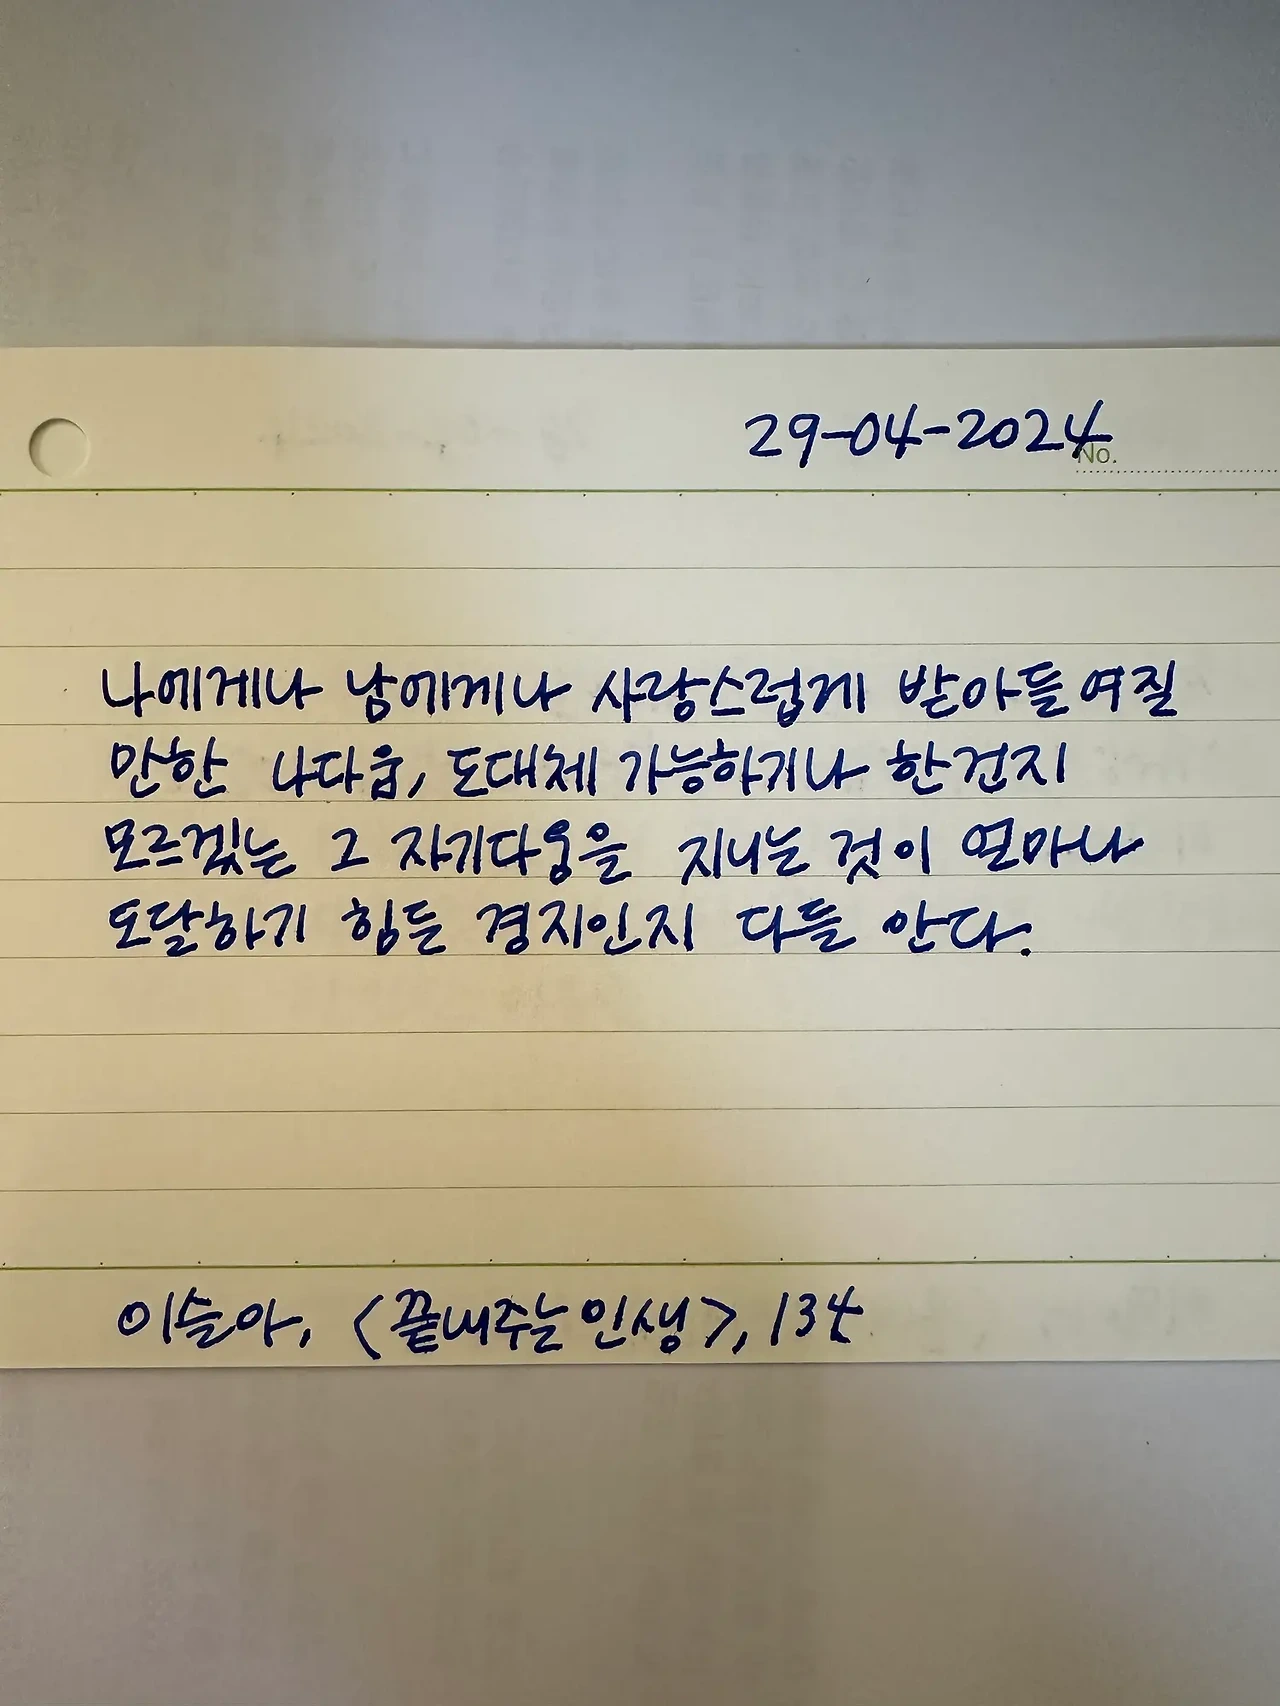 29-04-2024
No.
나에게나 남에게나 사랑스럽게 받아들여질
만한 나다움, 도대체 가능하기나 한건지
모르겠는 그 자기다움을 지니는 것이 얼마나
도달하기 힘든 경지인지 다들 안다.
이슬아, <끝내주는 인생>, 134